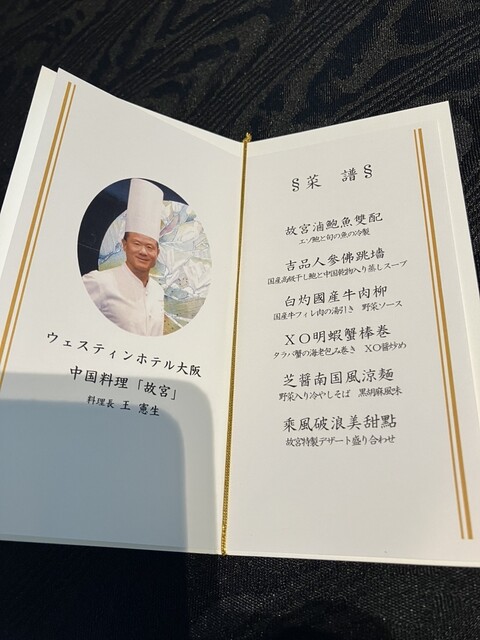 ウェスティンホテル大阪
中国料理「故宮」
料理長 王 憲生
§菜 譜§
故宮滷鮑魚雙配
エゾ鮑と旬の魚の冷製
吉品人參佛跳墻
国産高級干し鮑と中国乾物入り蒸しスープ
白灼國産牛肉柳
国産牛フィレ肉の湯引き 野菜ソース
ＸＯ明蝦蟹棒巻
タラバ蟹の海老包み巻き ＸＯ醤炒め
芝醤南国風涼麵
野菜入り冷やしそば 黒胡麻風味
乘風破浪美甜點
故宮特製デザート盛り合わせ